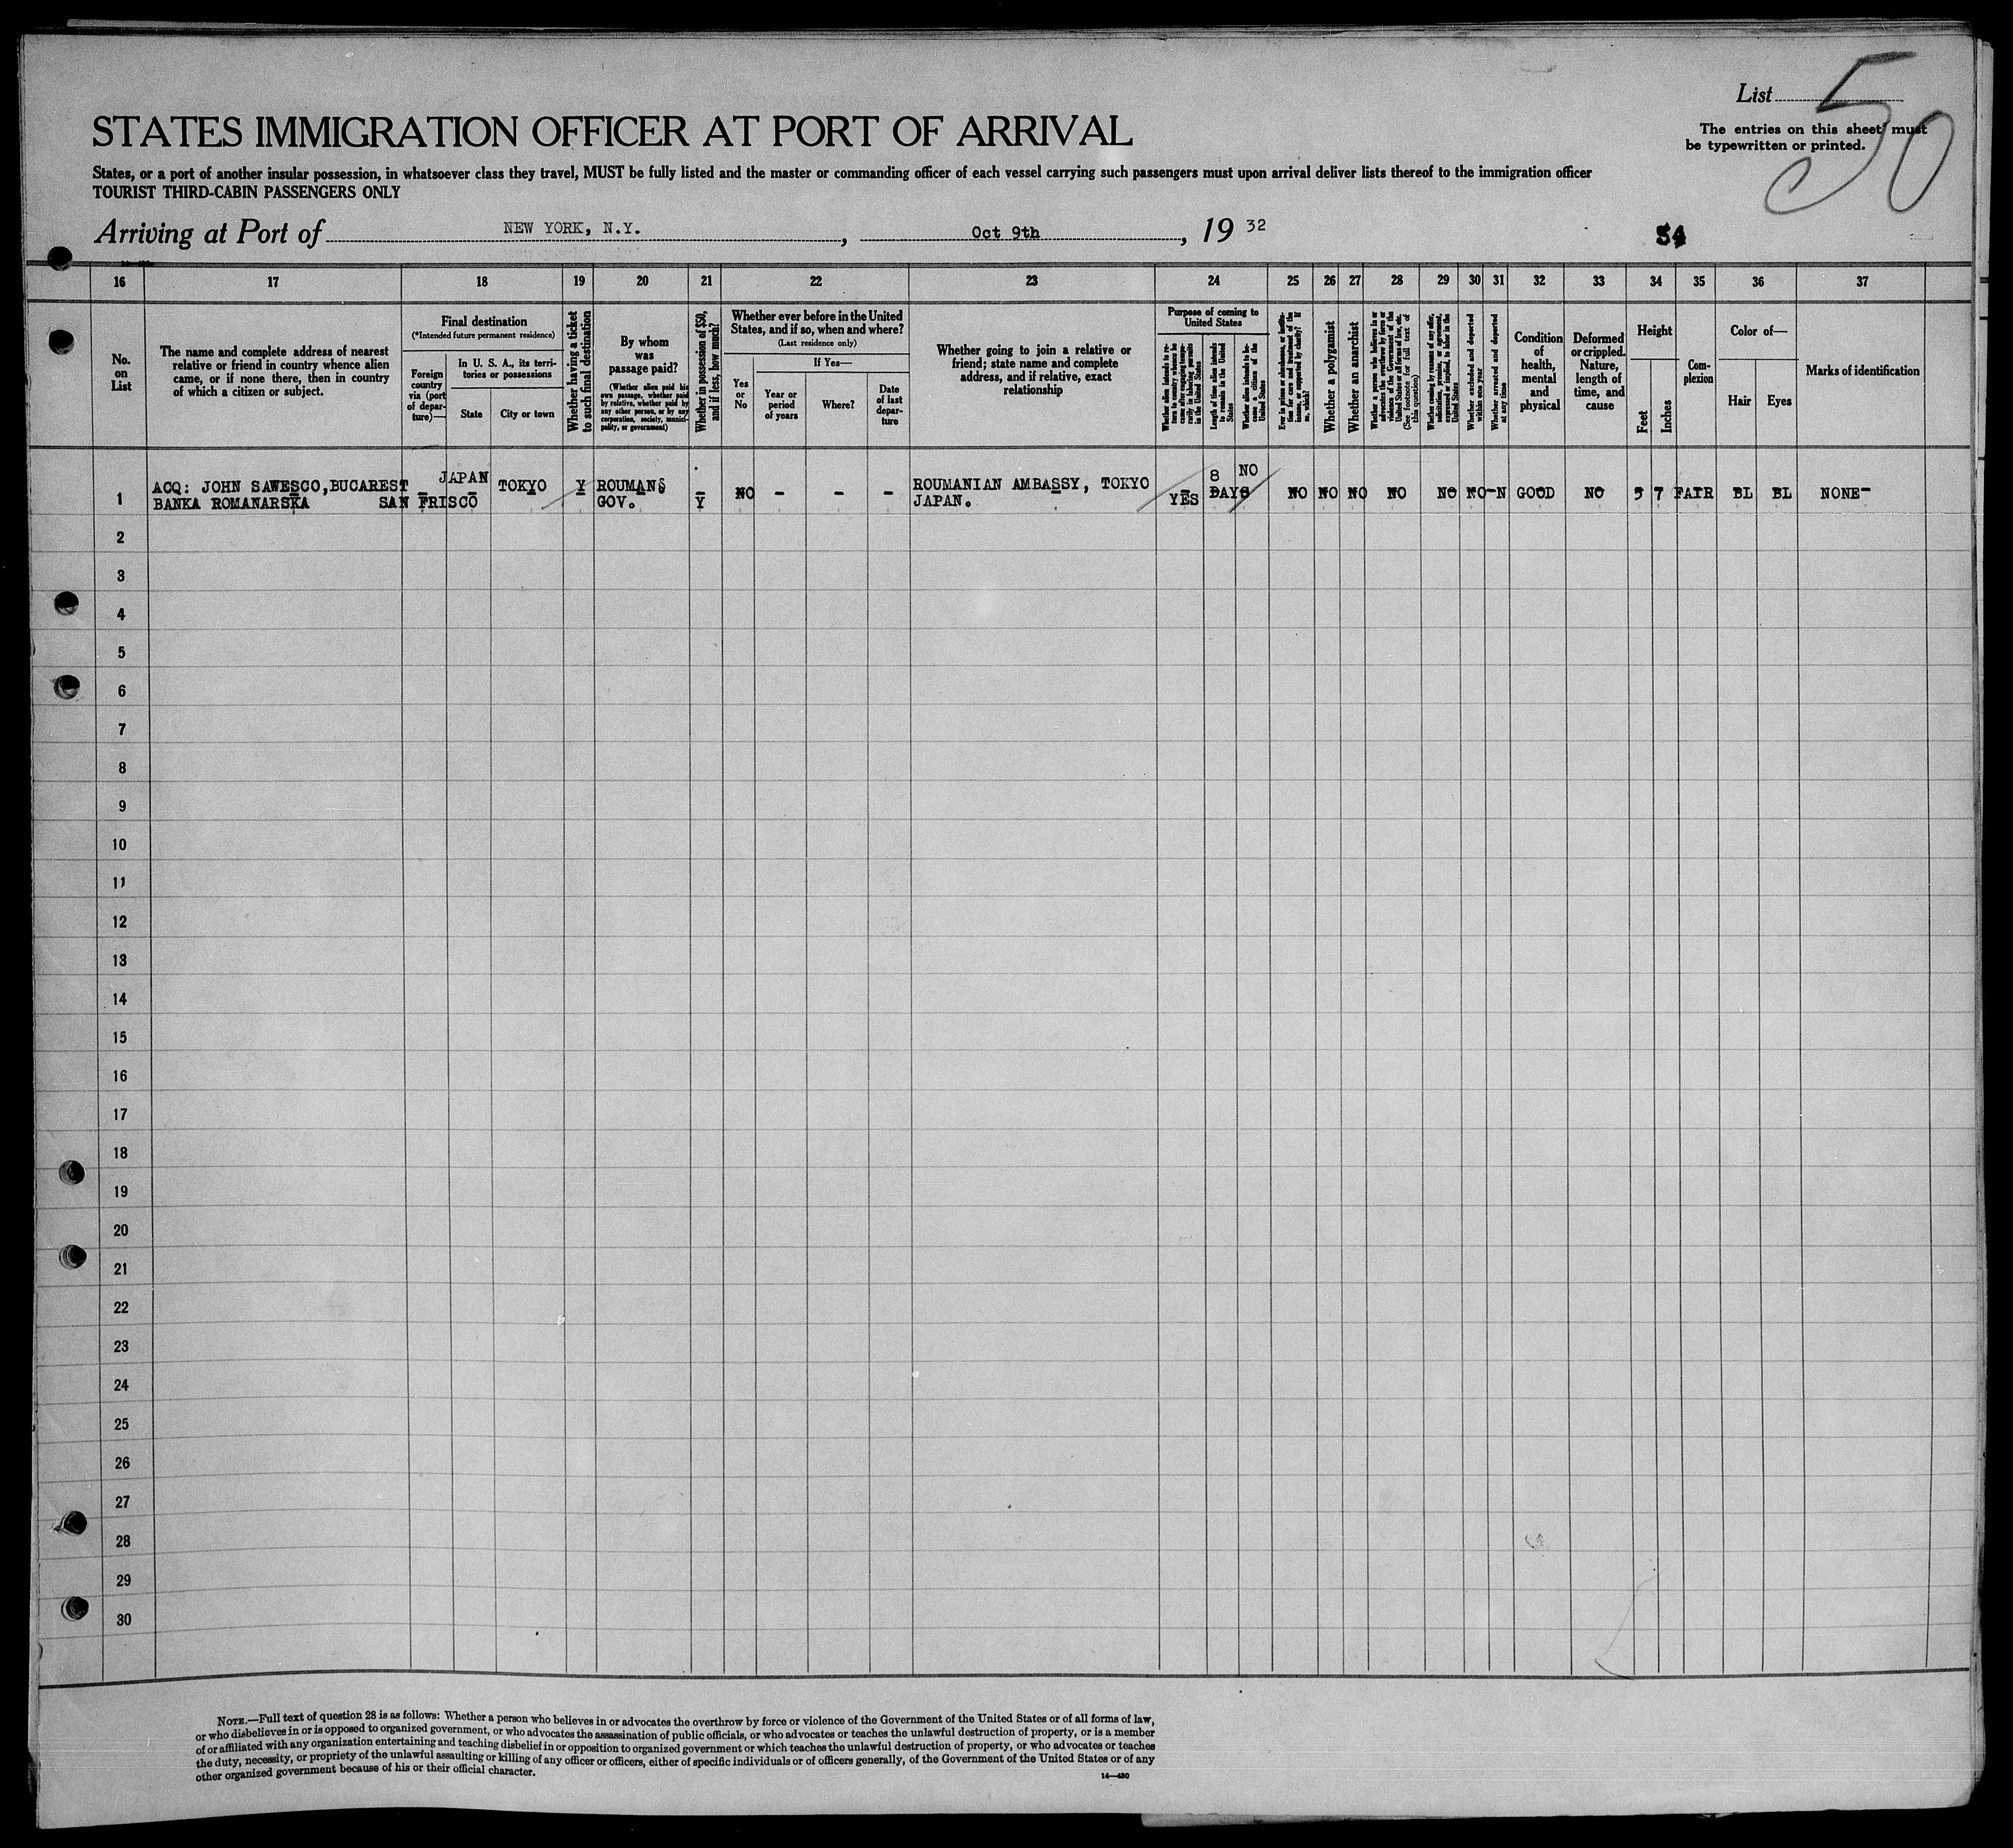 List 5
50
The entries on this sheet must
be typewritten or printed.
STATES IMMIGRATION OFFICER AT PORT OF ARRIVAL
States, or a port of another insular possession, in whatsoever class they travel, MUST be fully listed and the master or commanding officer of each vessel carrying such passengers must upon arrival deliver lists thereof to the immigration officer
TOURIST THIRD-CABIN PASSENGERS ONLY
Arriving at Port of NEW YORK, N.Y., Oct 9th, 19 32
54
16 17 18 19 20 21 22 23 24 25 26 27 28 29 30 31 32 33 34 35 36 37
No.
on
List
The name and complete address of nearest
relative or friend in country whence alien
came, or if none there, then in country
of which a citizen or subject.
Final destination
(*Intended future permanent residence)
Foreign
country
via (port
of depar-
ture)—
In U. S. A., its terri-
tories or possessions
State
City or town
Whether having a ticket
to such final destination
By whom
was
passage paid?
(Whether alien paid his
own passage, whether paid
by relative, whether paid by
any other person, or by any
corporation, society, munici-
pality, or government)
Whether in possession of $50,
and if less, how much?
Whether ever before in the United
States, and if so, when and where?
(Last residence only)
Yes
or
No
If Yes—
Year or
period
of years
Where?
Date
of last
depar-
ture
Whether going to join a relative or
friend; state name and complete
address, and if relative, exact
relationship
Purpose of coming to
United States
Whether alien intends to re-
turn to country whence he
came after engaging tempo-
rarily in laboring pursuits
in the United States
Length of time alien intends
to remain in the United
States
Whether alien intends to be-
come a citizen of the
United States
Ever in prison or almshouse, or institu-
tion for care and treatment of the
insane, or supported by charity? If
so, which?
Whether a polygamist
Whether an anarchist
Whether a person who believes in or
advocates the overthrow by force or
violence of the Government of the
United States or all forms of law, etc.
(See footnote for full text of
this question)
Whether coming by reason of any offer,
solicitation, promise, or agreement,
expressed or implied, to labor in the
United States
Whether excluded and deported
within one year
Whether arrested and deported
at any time
Condition
of
health,
mental
and
physical
Deformed
or crippled.
Nature,
length of
time, and
cause
Height
Feet
Inches
Com-
plexion
Color of—
Hair
Eyes
Marks of identification
JAPAN 8 NO
1 ACQ: JOHN SAWESCO, BUCAREST - - TOKYO Y ROUMANS - NO - - - ROUMANIAN AMBASSY, TOKYO - DAYS NO NO NO NO NO NO-N GOOD NO 5 7 FAIR BL BL NONE-
BANKA ROMANARSKA SAN FRISCO GOV. Y JAPAN. YES
2
3
4
5
6
7
8
9
10
11
12
13
14
15
16
17
18
19
20
21
22
23
24
25
26
27
28
29
30
NOTE.—Full text of question 28 is as follows: Whether a person who believes in or advocates the overthrow by force or violence of the Government of the United States or of all forms of law,
or who disbelieves in or is opposed to organized government, or who advocates the assassination of public officials, or who advocates or teaches the unlawful destruction of property, or is a member
of or affiliated with any organization entertaining and teaching disbelief in or opposition to organized government or which teaches the unlawful destruction of property, or who advocates or teaches
the duty, necessity, or propriety of the unlawful assaulting or killing of any officer or officers, either of specific individuals or of officers generally, of the Government of the United States or of any
other organized government because of his or their official character.
14—430